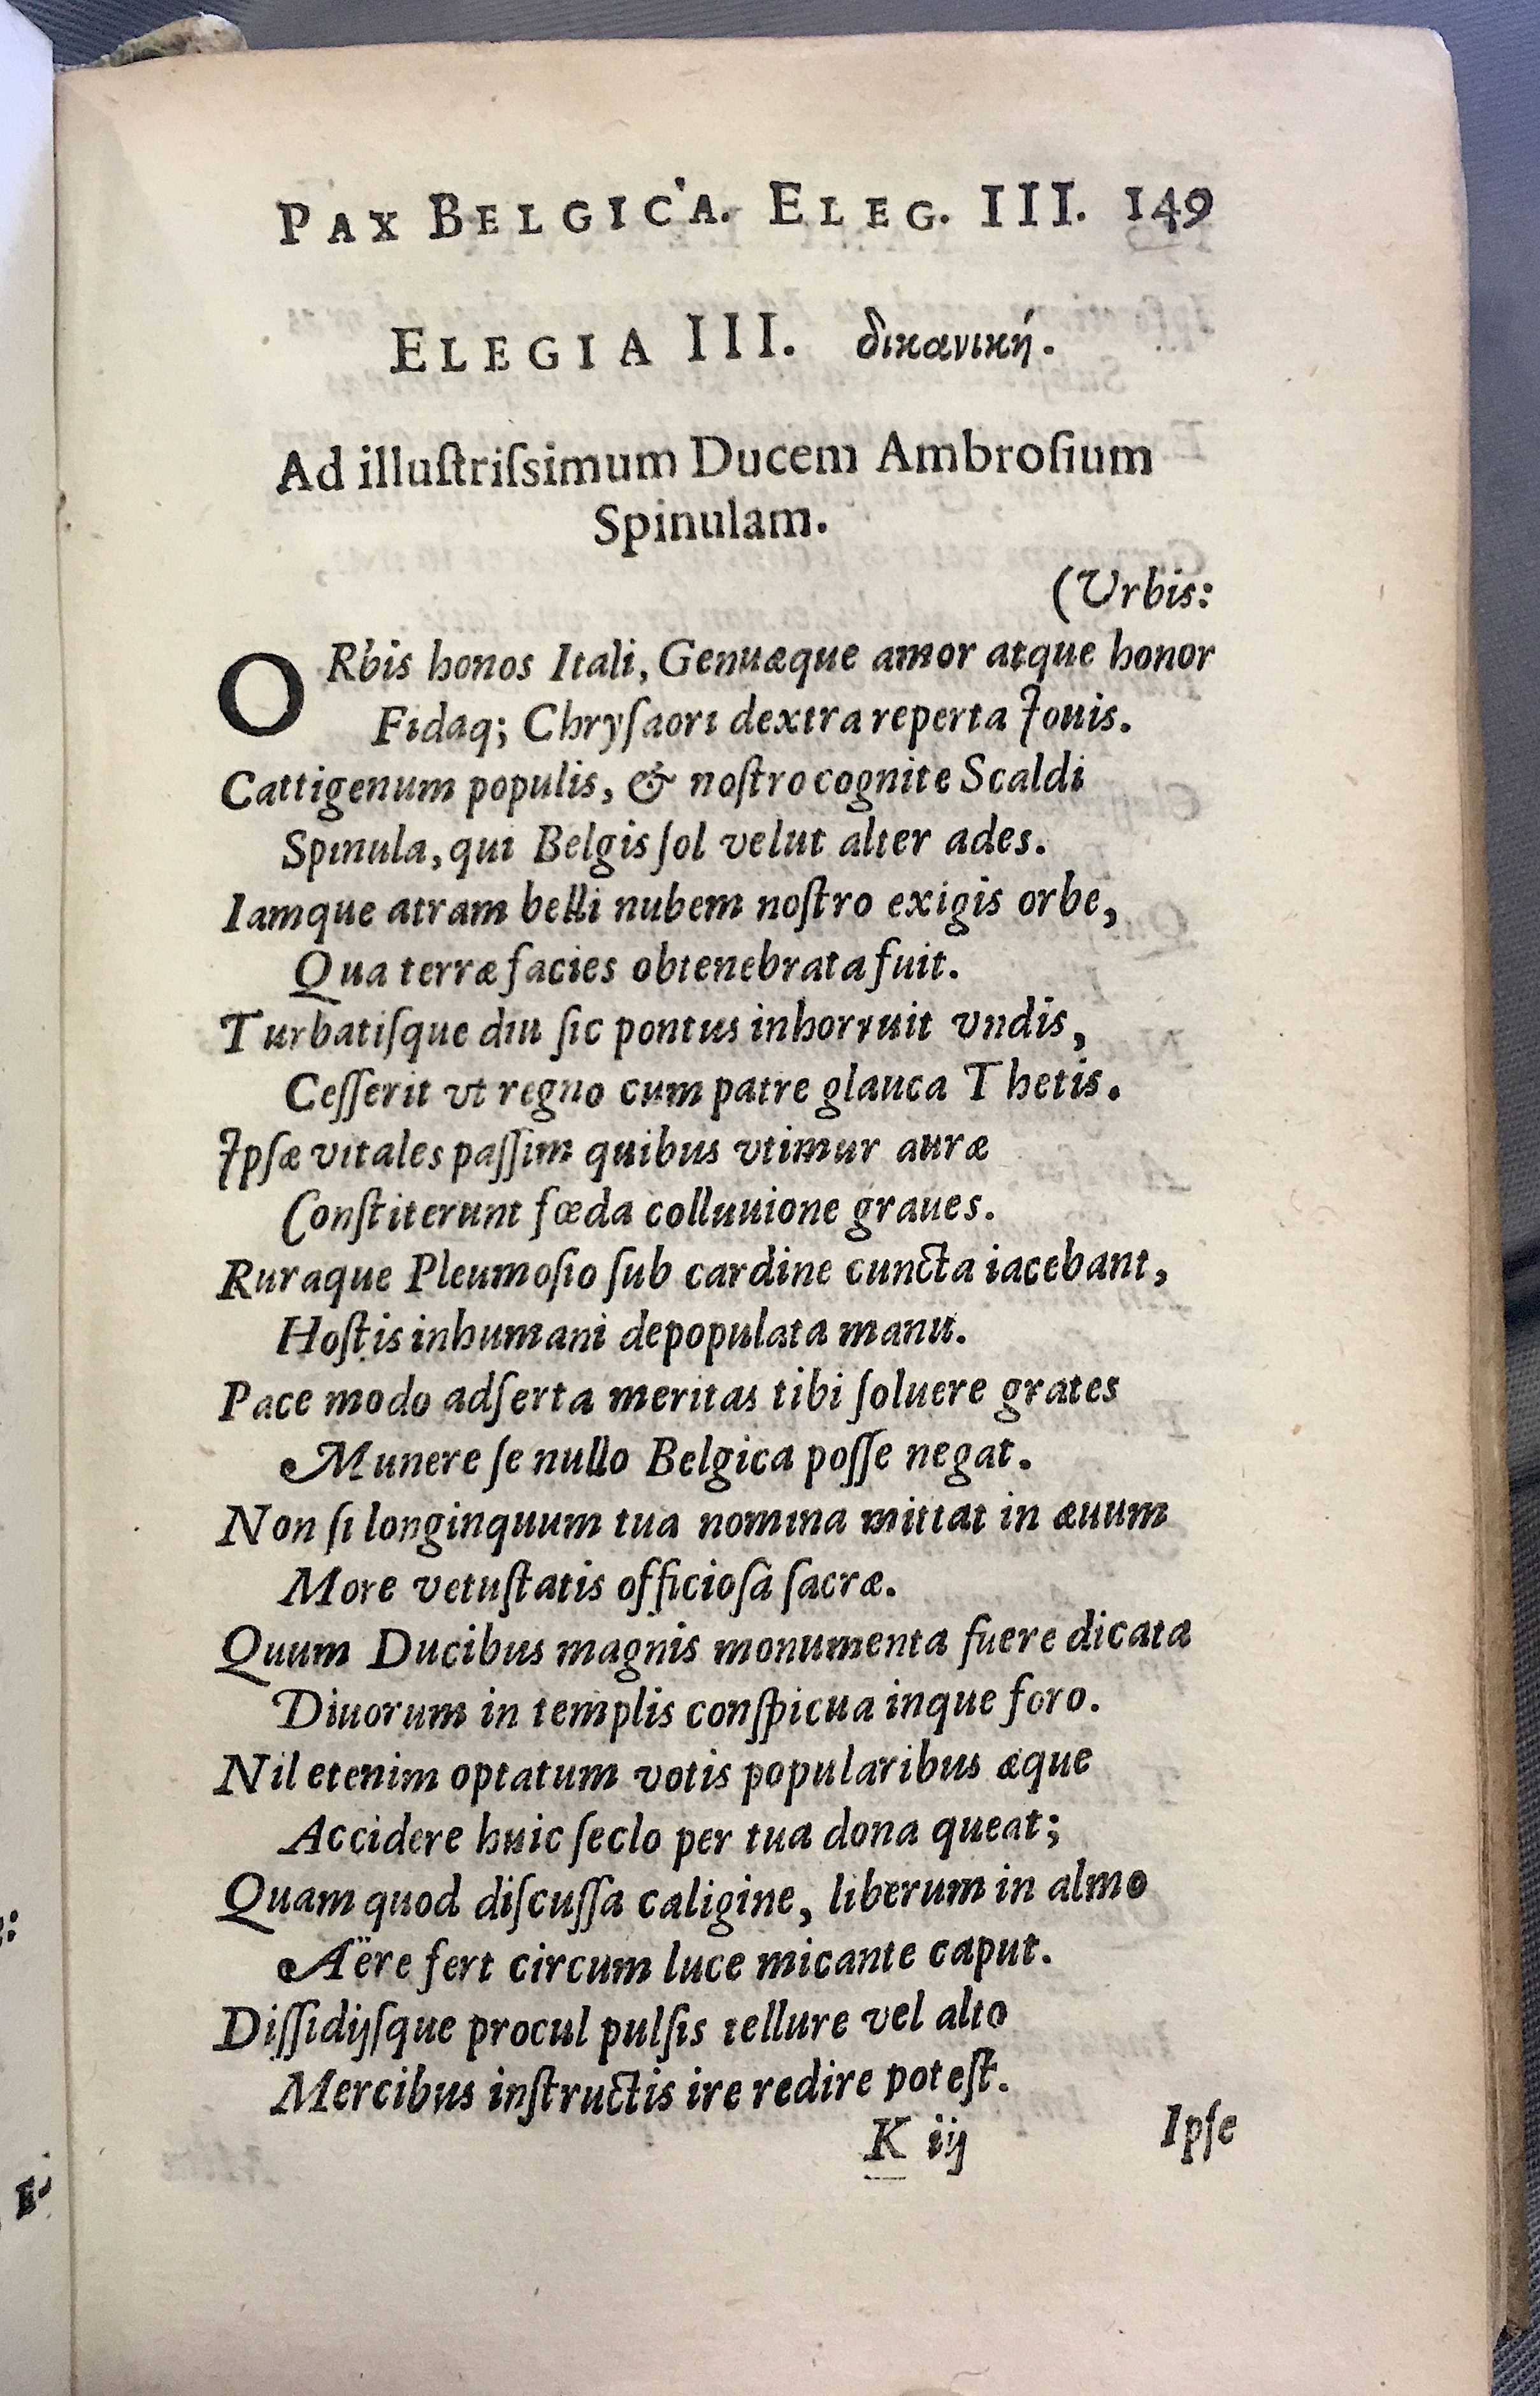 PAX BELGICA. ELEG. III. 149
ELEGIA III. δικανική.
Ad illuſtriſsimum Ducem Ambroſium
Spinulam.
(Vrbis:
ORbis honos Itali, Genuæque amor atque honor
Fidaq; Chryſaori dextra reperta Iouis.
Cattigenum populis, & noſtro cognite Scaldi
Spinula, qui Belgis ſol velut alter ades.
Iamque atram belli nubem noſtro exigis orbe,
Qua terræ facies obtenebrata fuit.
Turbatiſque diu ſic pontus inhorruit vndis,
Ceſſerit vt regno cum patre glauca Thetis.
Ipſæ vitales paſſim quibus vtimur auræ
Conſtiterunt fœda colluuione graues.
Ruraque Pleumoſio ſub cardine cuncta iacebant,
Hoſtis inhumani depopulata manu.
Pace modo adſerta meritas tibi ſoluere grates
Munere ſe nullo Belgica poſſe negat.
Non ſi longinquum tua nomina mittat in æuum
More vetuſtatis officioſà ſacræ.
Quum Ducibus magnis monumenta fuere dicata
Diuorum in templis conſpicua inque foro.
Nil etenim optatum votis popularibus æque
Accidere huic ſeclo per tua dona queat;
Quam quod diſcuſſa caligine, liberum in almo
Aëre fert circum luce micante caput.
Diſſidijſque procul pulſis tellure vel alto
Mercibus inſtructis ire redire poteſt.
K iij
Ipſe